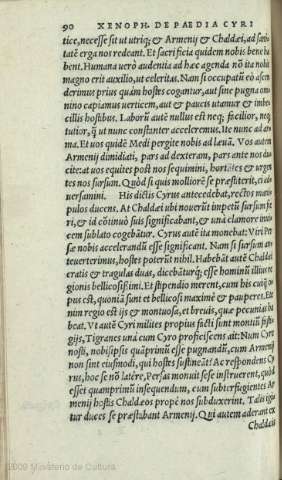 90 XENOPH. DE PAEDIA CYRI
tice, necesse sit ut utriq; & Armenij & Chaldæi, ad
tatē erga nos redeant. Et sacrificia quidem nobis bene
bent. Humana uerò audentia ad hæc agenda nō ita nobis
magno erit auxilio, ut celeritas. Nam si occupatū eò ascen
derimus prius quàm hostes cogantur, aut sine pugna om
nino capiamus uerticem, aut & paucis utamur & imbe
cillis hostibus. Laborū autē nullus est neq; facilior, neq;
tutior, q̄ ut nunc constanter acceleremus. Ite nunc ad ar
ma. Et uos quidē Medi pergite nobis ad læuā. Vos autem
Armenij dimidiati, pars ad dexteram, pars ante nos du
cite: at uos equites post nos sequimini, hortātes & urgen
tes nos sursum. Quòd si quis molliorē se præstiterit,
uersamini. His dictis Cyrus antecedebat, rectos mani
pulos ducens. At Chaldæi ubi nouerūt impetū sursum fi
ri, & id cōtinuò suis significabant, & una clamore inui
cem sublato cogebātur. Cyrus autē ita monebat: Viri Per
sæ nobis accelerandū esse significant. Nam si sursum an
teuerterimus, hostes poterūt nihil. Habebāt autē Chaldæi
cratis & tragulas duas, dicebāturq; esse hominū illius re
gionis bellicosissimi. Et stipendio merent, cum his cuiq̄ o
pus est, quoniā sunt & bellicosi maximè & pauperes. Ete
nim regio est ijs & montuosa, et breuis, quæ pecunias
beat. Vt autē Cyri milites propius facti sunt montiū fasti
gijs, Tigranes unà cum Cyro proficiscens ait: Num Cyre
nosti, nobisipsis quàprimū esse pugnandū, cum Armenij
non sint eiusmodi, qui hostes sustineāt? Ac respondens Cy
rus, hoc se nō latêre, Persas monuit sese instruerent, quòd
esset quamprimū insequendum, cum subterfugientes Ar
menij hostis Chaldæos propè nos subduxerint. Talis
tur duces se præstabant Armenij. Qui autem aderant ex
Chaldæis
2009 Ministerio de Cultura